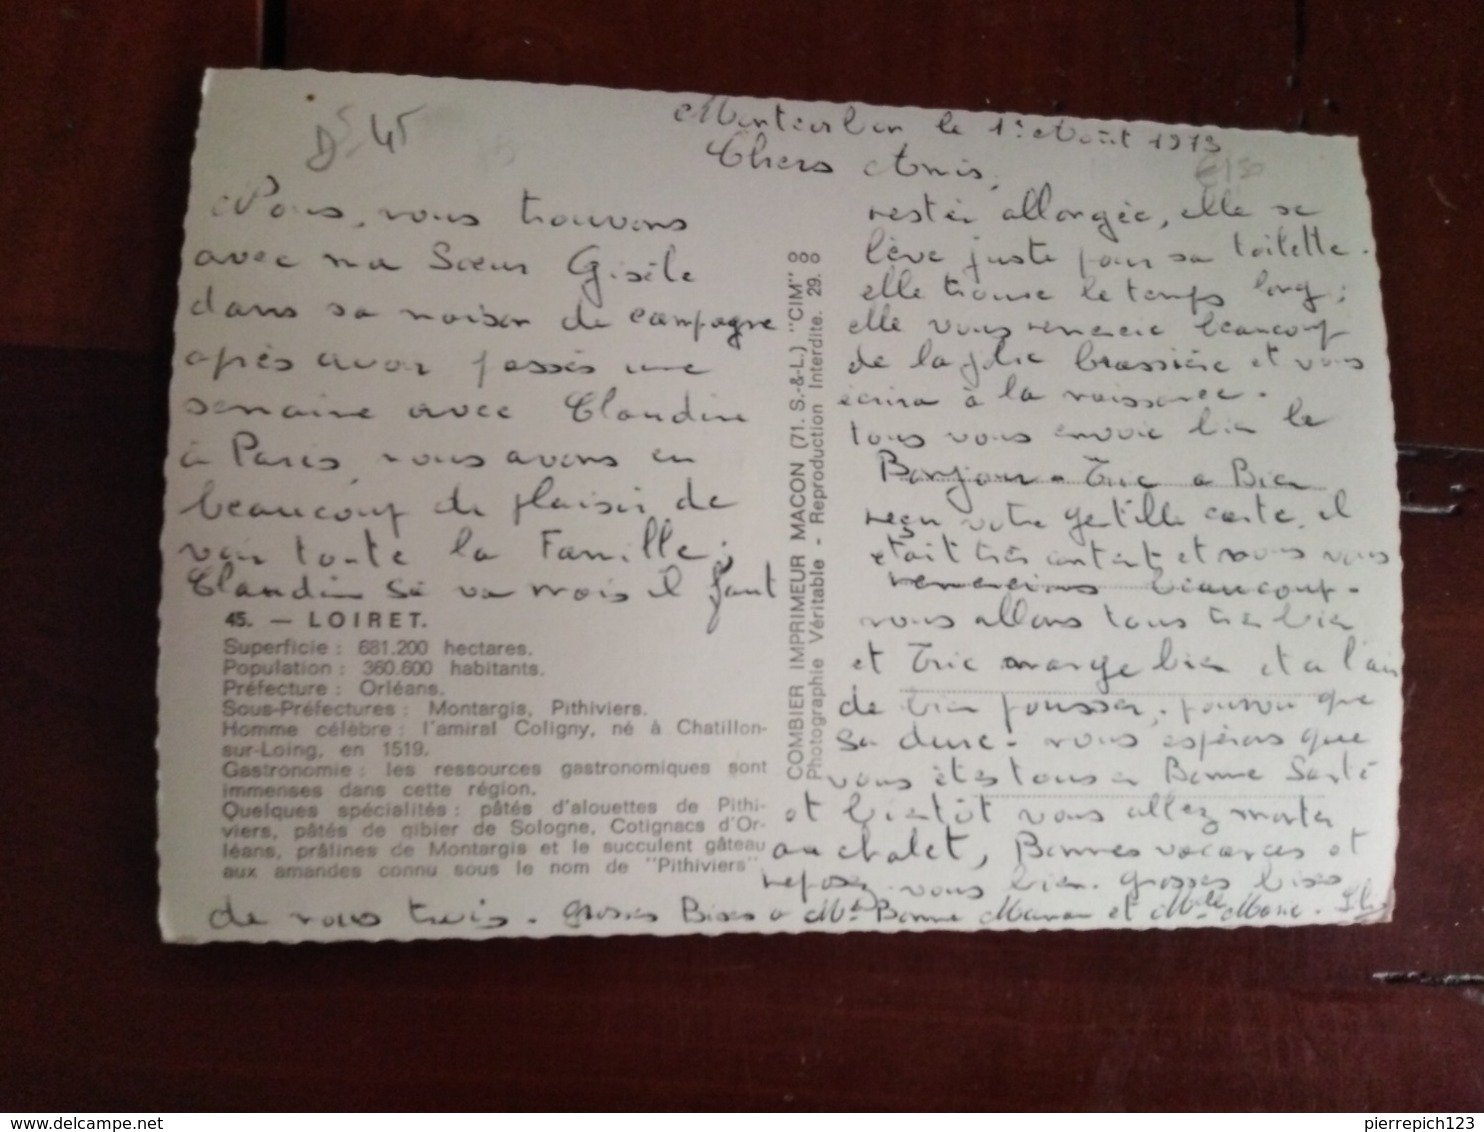 D 45
le 1er Août 1973
Chers Amis,
€1,50
Nous, nous trouvons
avec ma Sœur Gisèle
dans sa maison de campagne
après avoir passés une
semaine avec Claudine
à Paris, nous avons eu
beaucoup de plaisir de
voir toute la Famille;
Claudine sa va mais il faut
45. — LOIRET.
Superficie : 681.200 hectares.
Population : 360.600 habitants.
Préfecture : Orléans.
Sous-Préfectures : Montargis, Pithiviers.
Homme célèbre : l'amiral Coligny, né à Chatillon-
sur-Loing, en 1519.
Gastronomie : les ressources gastronomiques sont
immenses dans cette région.
Quelques spécialités : pâtés d'alouettes de Pithi-
viers, pâtés de gibier de Sologne, Cotignacs d'Or-
léans, prâlines de Montargis et le succulent gâteau
aux amandes connu sous le nom de "Pithiviers"
COMBIER IMPRIMEUR MACON (71. S.-&-L.) "CIM"
Photographie Véritable - Reproduction Interdite. 29.
rester allongée, elle se
lève juste pour sa toilette.
elle trouve le temps long;
elle vous remercie beaucoup
de la jolie brassière et vous
écrira à la naissance.
tous vous envoie bien le
Bonjour. Eric a Bien
reçu votre gentille carte, il
était très content et nous vous
remercions beaucoup.
nous allons tous très bien
et Eric mange bien et a l'air
de bien pousser, pourvu que
sa dure. nous espérons que
vous êtes tous en Bonne Santé
et bientôt vous allez monter
au chalet, Bonnes vacances et
reposez vous bien. grosses bises
de nous trois. grosses Bises à Bonne Maman et Mlle